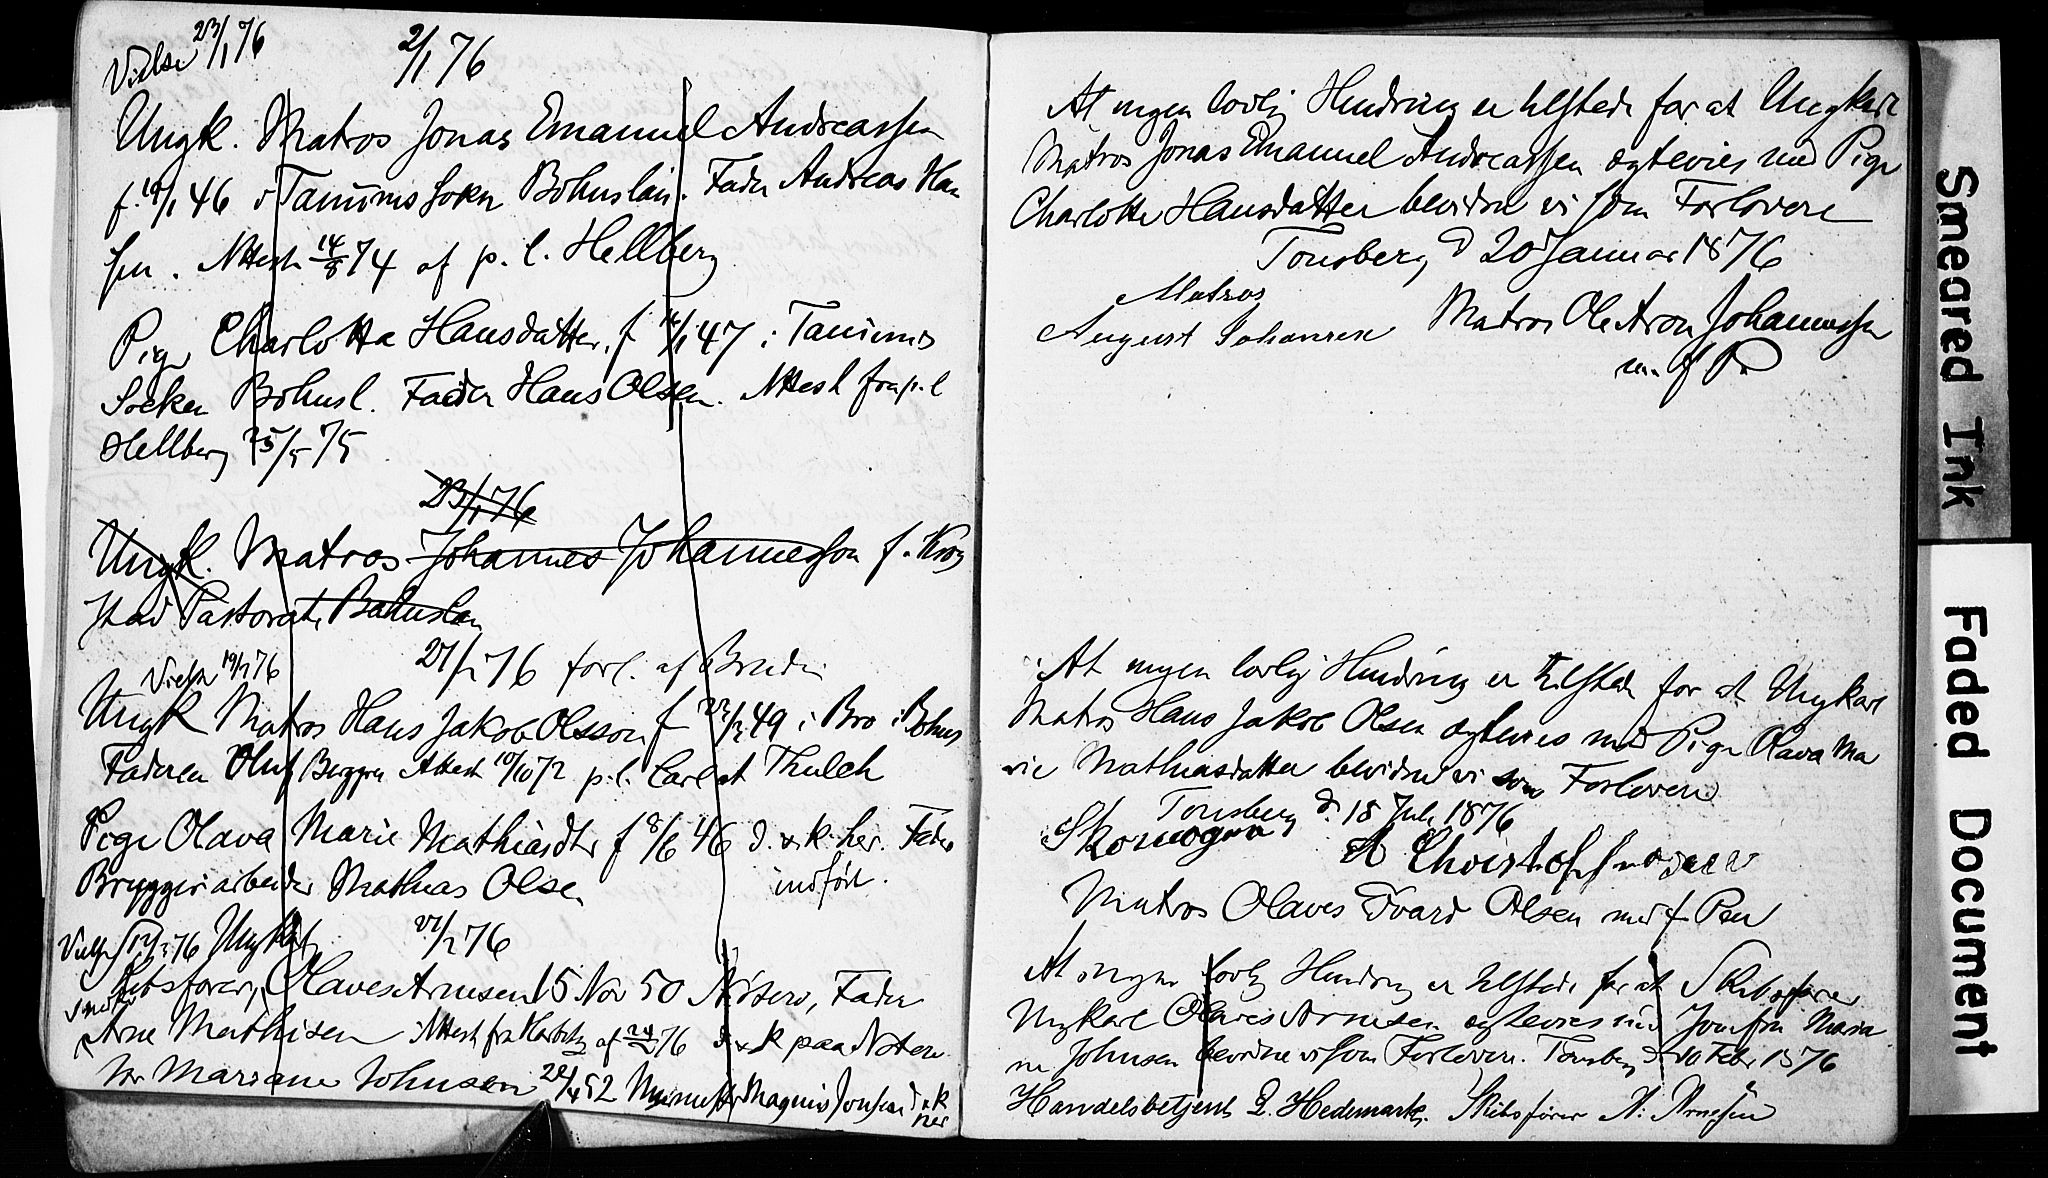 Vielse 23/1 76
2/1 76
Ungk. Matros Jonas Emanuel Andreassen
f. 19/1 46 i Tanums Sokn Bohuslän. Fader Andreas Han
sen. Attest 14/8 74 af p. l. Hellberg
Pige Charlotta Hansdatter, f 14/1 47 i Tanums
Socken Bohusl. Fader Hans Olsen. Attest fra p. l
Hellberg 25/5 75
23/1 76
Ungk. Matros Johannes Johannesson f. Krog
stad Pastorat, Bohuslän
27/1 76 forl. af Bruden
Vielse 19/7 76
Ungk Matros Hans Jakob Olsson f 22/12 49 i Bro i Bohus
Faderen Oluf Berggren Attest 10/10 72 p. l. Carl Thulch
Pige Olava Marie Mathiasdtr f 8/6 46 d. & k. her. Fader
Bryggeriarbeider Mathias Olsen
indført.
Vielse 76 Ungkarl
27/1 76
Skibsfører, Olaves Arnesen 15 Nov 50 Nøterø, Fader
Smed
Arne Mathisen Attest fra af 76 d & k paa Nøterø
Mariane Johnsen 22/4 52 Magnus Jonsen d & k
her
At ingen lovlig Hindring er tilstede for at Ungkarl
Matros Jonas Emanuel Andreassen ægtevies med Pige
Charlotte Hansdatter bevidne vi som Forlovere
Tonsberg d 20 Januar 1876
Matros
August Johansen Matros Ole Aron Johannessen
m. f P.
At ingen lovlig Hindring er tilstede for at Ungkarl
Matros Hans Jakob Olsen ægtevies med Pige Olava Ma
rie Mathiasdatter bevidne vi som Forlovere
Tonsberg d. 18 Juli 1876
Skomager A Christoffersen
Matros Olaves Evard Olsen med f Pen
At ingen lovlig Hindring er tilstede for at Skibsfører
Ungkarl Olaves Arnesen ægtevies med Jomfru Maria
ne Johnsen bevidne vi som Forlovere. Tonsberg d 10 Febr 1876
Handelsbetjent L. Hedemark. Skibsfører A: Arnesen
Smeared Ink
Faded Document